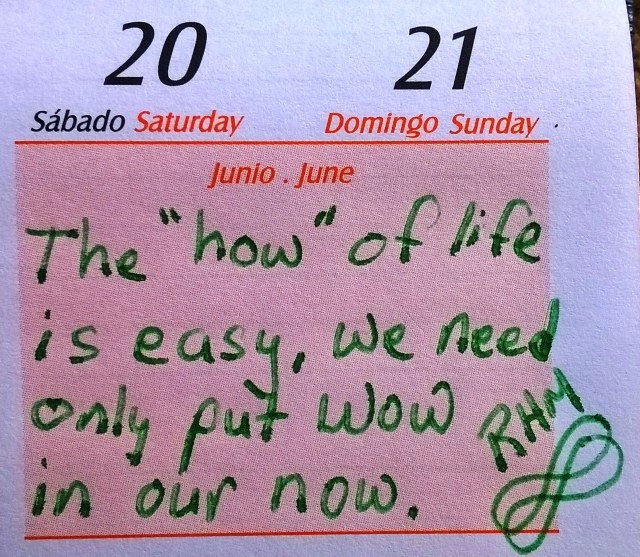 20 21
Sábado Saturday Domingo Sunday
Junio . June
The "how" of life
is easy, we need
only put wow
in our now.
RHM